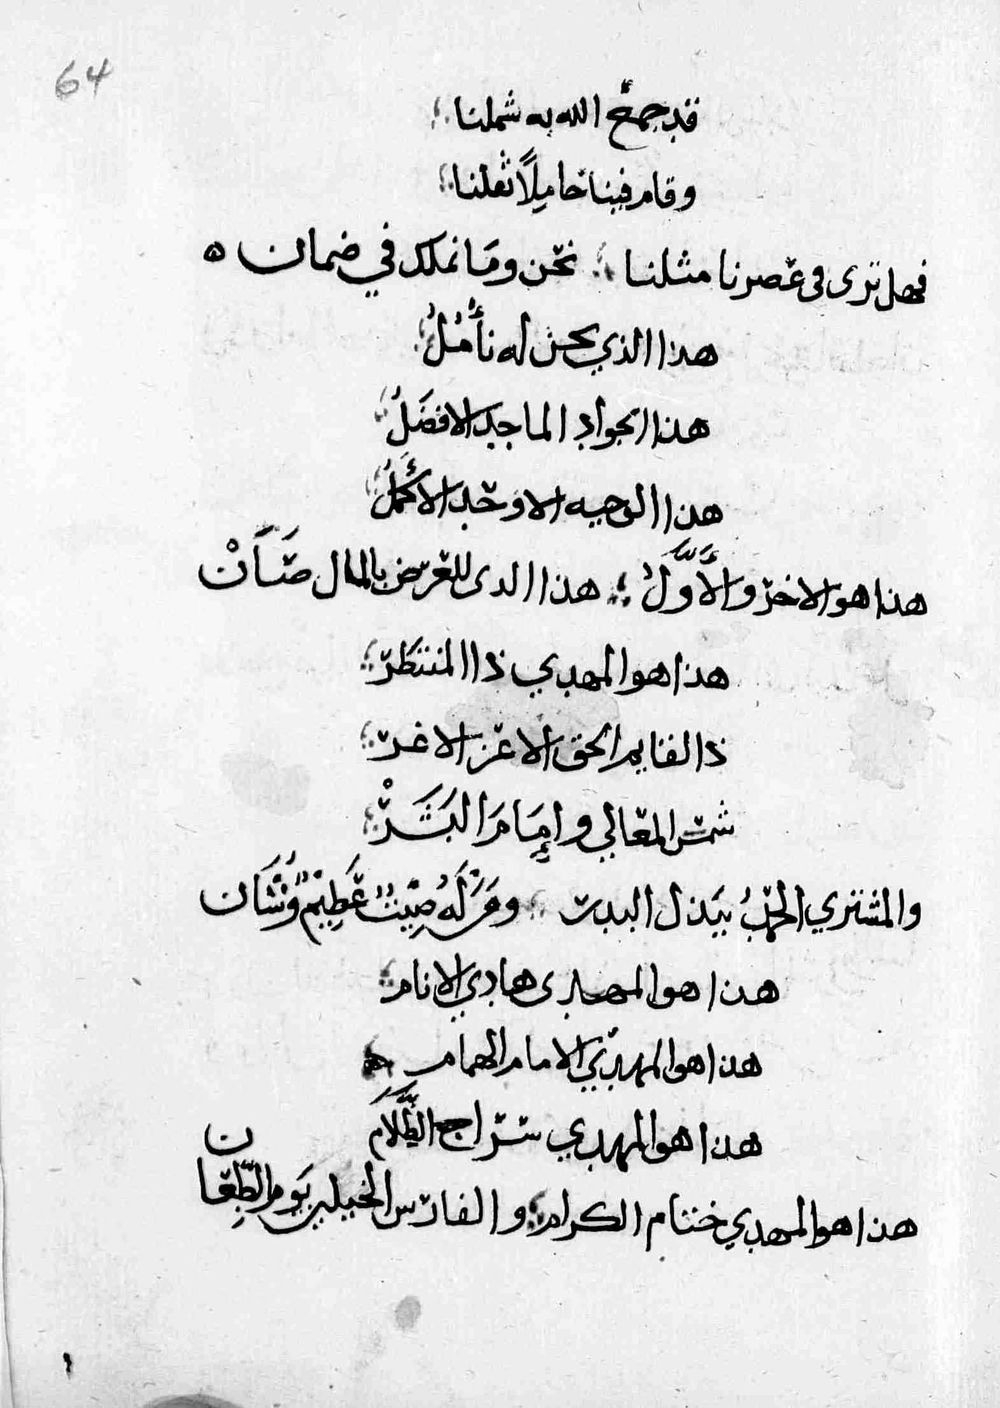 64
قد جمع الله به شملنا
وقام فينا حاملًا ثقلنا
فهل ترى فى عصرنا مثلنا نحن وما نملك في ضمان ه
هذا الذي كنا له نأملُ
هذا الجواد الماجد الافضلُ
هذا الوجيه الاوحد الأكملُ
هذا هو الاخر والأَوَّلُ هذا الدى للعرض بالمال صَانْ
هذا هو المهدي ذا المنتظر
ذا القايم الحق الاعز الاغر
شمس المعالي وإِمَام البَشَرْ
والمشتري الحمدُ ببذل البدر ومَن لَهُ صِيْتٌ عَظِيْمٌ وَشَان
هذا هو المهدى هادي الانام
هذا هو المهدي الامام الهمام
هذا هو المهدي سراج الظَّلَام
هذا هو المهدي ختام الكرام والفارس يَوم الطِّعَان